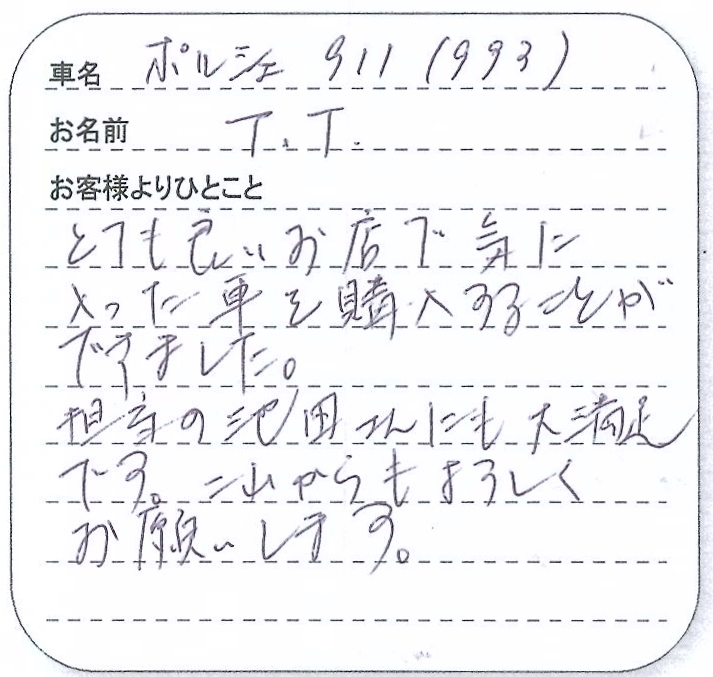 車名 ポルシェ 911 (993)
お名前 T.T.
お客様よりひとこと
とても良いお店で気に
入った車を購入することが
できました。
担当の池田さんにも大満足
です。これからもよろしく
お願いします。